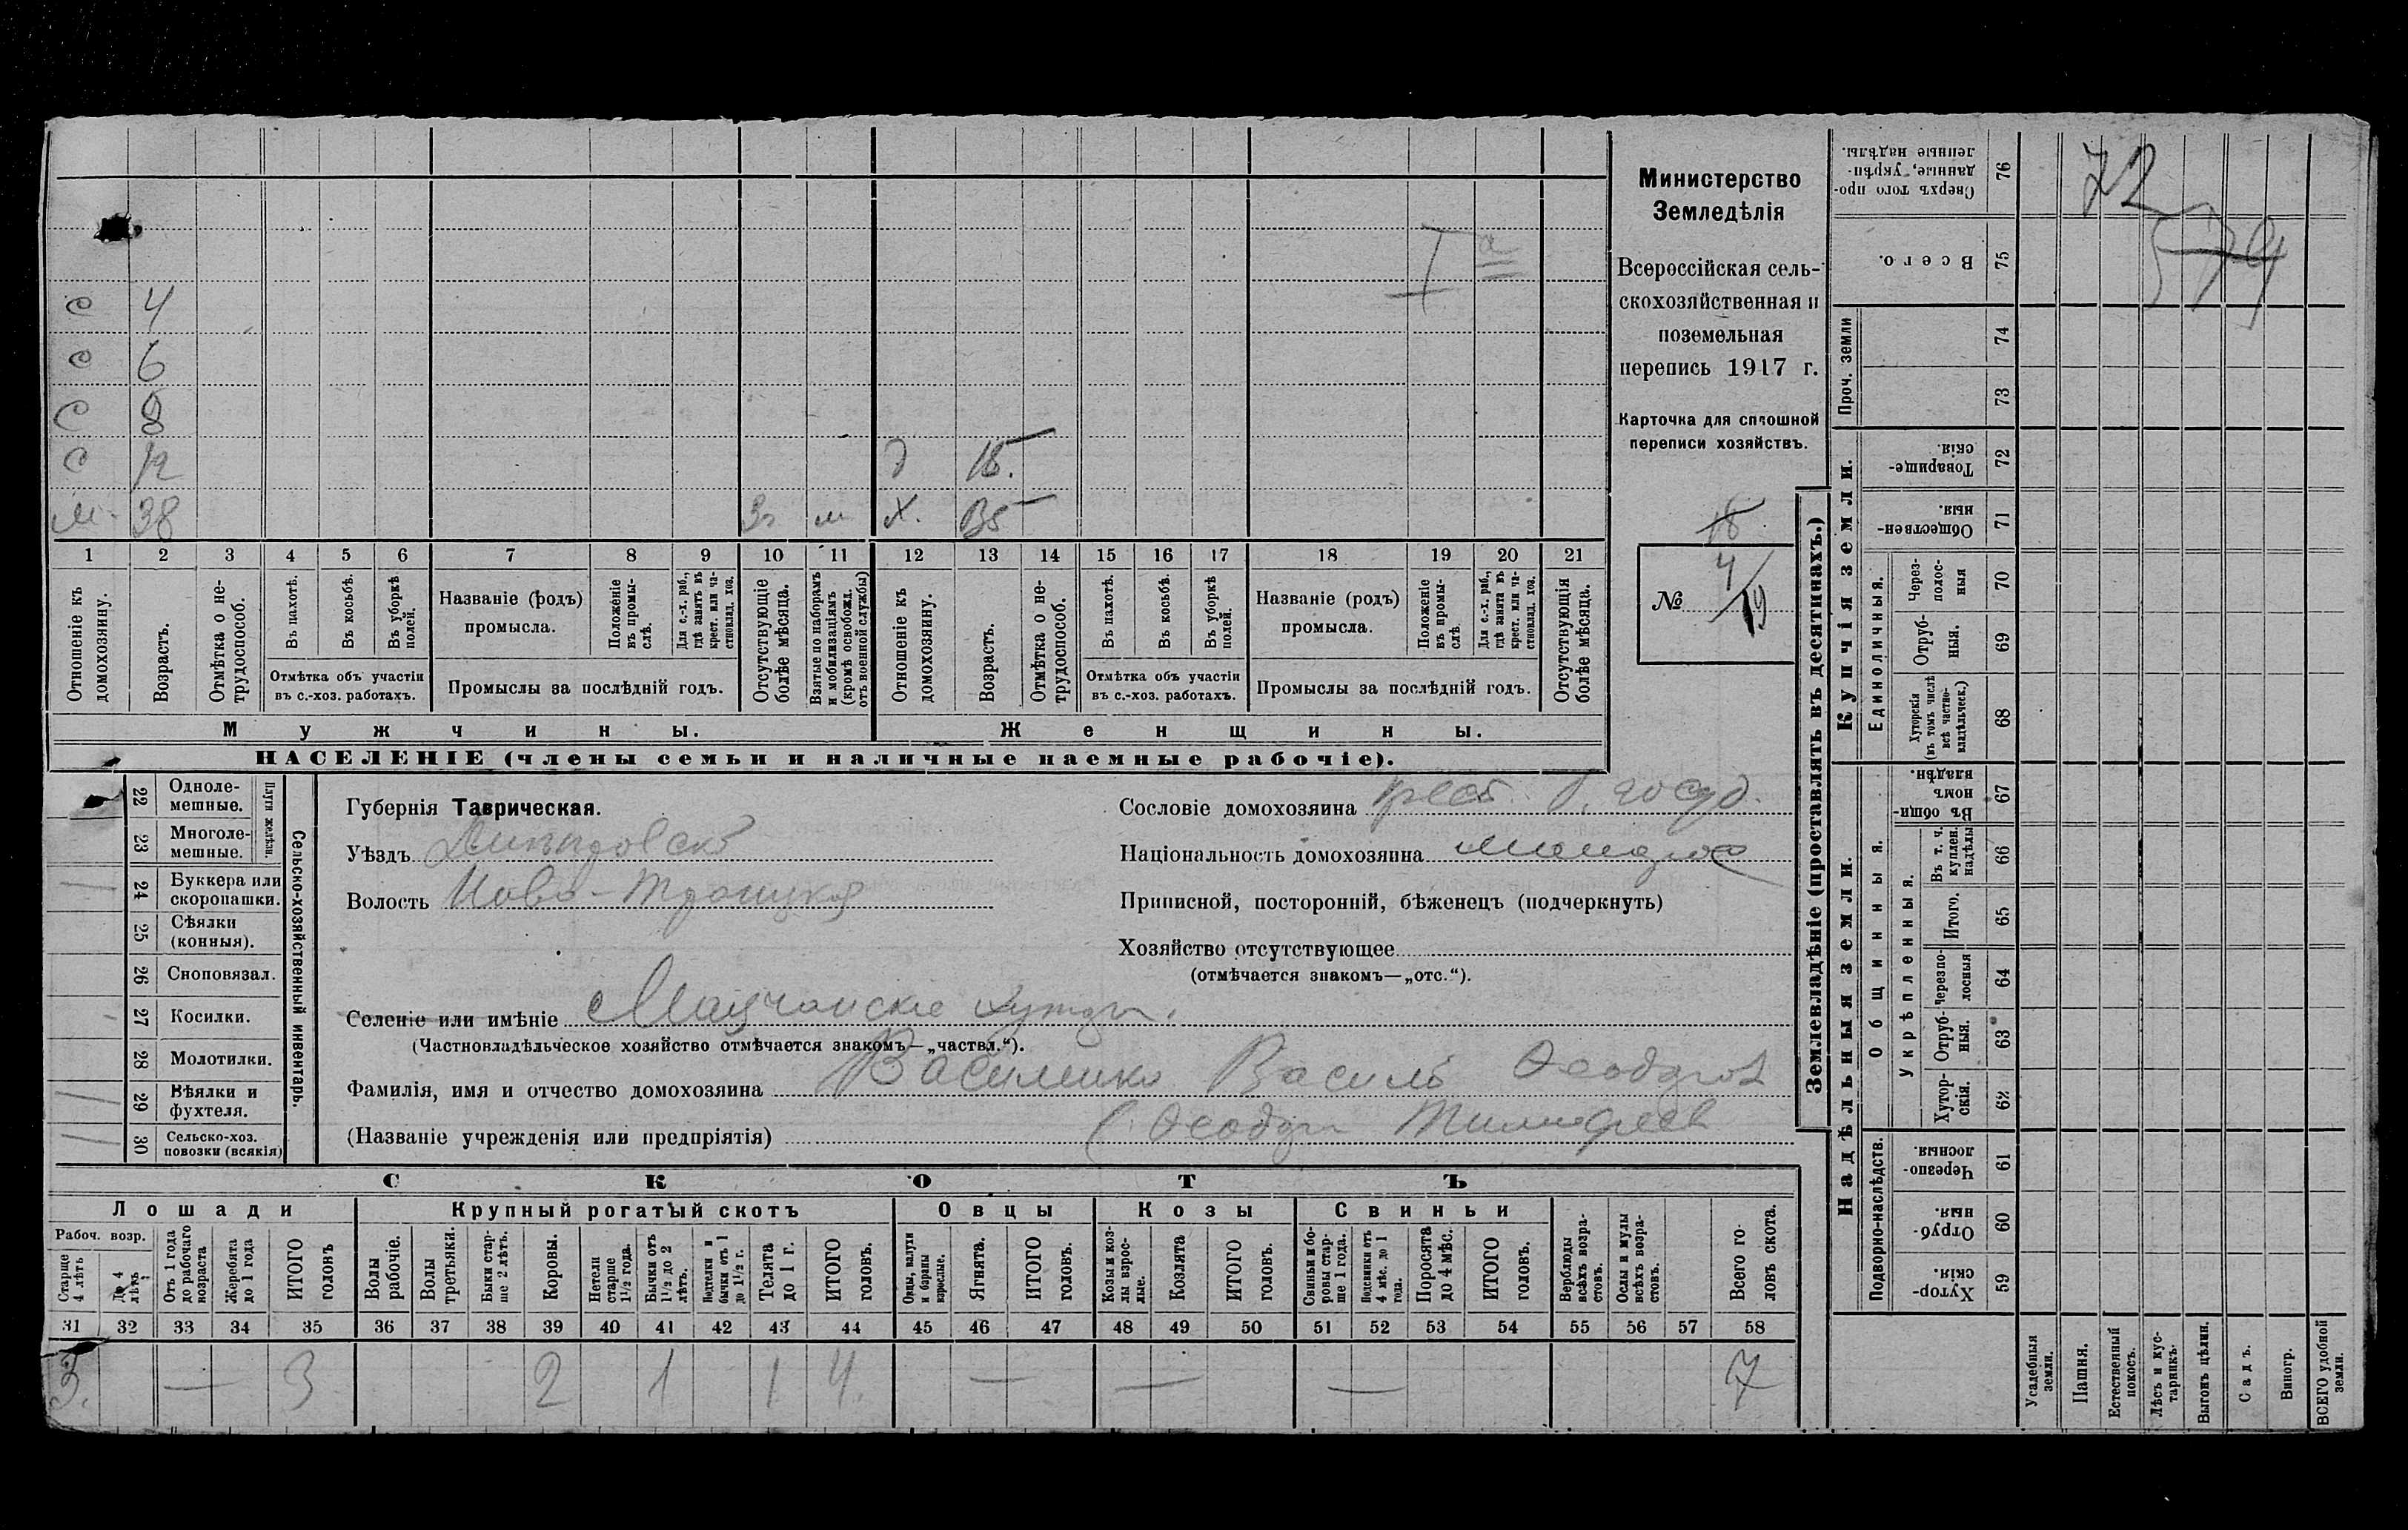 Министерство
Земледѣлія
Всероссійская сель-
скохозяйственная и
поземельная
перепись 1917 г.
Карточка для сплошной
переписи хозяйствъ.
18
№ 4/19
I а
с 4
с 6
с 8
с 12 д 18.
м. 38 3г м х. 35
1 2 3 4 5 6 7 8 9 10 11 12 13 14 15 16 17 18 19 20 21
Отношеніе къ домохозяину.
Возрастъ.
Отмѣтка о не-трудоспособ.
Въ пахотѣ.
Въ косьбѣ.
Въ уборкѣ полей.
Отмѣтка объ участіи
въ с.-хоз. работахъ.
Названіе (родъ)
промысла.
Положеніе въ промы-слѣ.
Для с.-х. раб., гдѣ занятъ въ крест. или ча-стновлад. хоз.
Промыслы за послѣдній годъ.
Отсутствующіе болѣе мѣсяца.
Взятые по наборамъ и мобилизаціямъ (кромѣ освобожд. отъ военной службы)
Отношеніе къ домохозяину.
Возрастъ.
Отмѣтка о не-трудоспособ.
Въ пахотѣ.
Въ косьбѣ.
Въ уборкѣ полей.
Отмѣтка объ участіи
въ с.-хоз. работахъ.
Названіе (родъ)
промысла.
Положеніе въ промы-слѣ.
Для с.-х. раб., гдѣ занята въ крест. или ча-стновлад. хоз.
Промыслы за послѣдній годъ.
Отсутствующія болѣе мѣсяца.
Мужчины. Женщины.
НАСЕЛЕНІЕ (члены семьи и наличные наемные рабочіе).
22 Одноле-мешные.
23 Многоле-мешные.
Плуги желѣзн.
24 Буккера или скоропашки.
25 Сѣялки (конныя).
26 Сноповязал.
27 Косилки.
28 Молотилки.
29 Вѣялки и фухтеля.
30 Сельско-хоз. повозки (всякія)
Сельско-хозяйственный инвентарь.
Губернія Таврическая.
Уѣздъ Днѣпровск
Волость Ново-Троицкая
Сословіе домохозяина крест. б. госуд.
Національность домохозяина малорос
Приписной, посторонній, бѣженецъ (подчеркнуть)
Хозяйство отсутствующее
(отмѣчается знакомъ—„отс.“).
Селеніе или имѣніе хутора.
(Частновладѣльческое хозяйство отмѣчается знакомъ—„частвл.“).
Фамилія, имя и отчество домохозяина Василенко Василь Ѳеодоров
(Названіе учрежденія или предпріятія) (Ѳеодор Тимофеев
СКОТЪ
Лошади Крупный рогатый скотъ Овцы Козы Свиньи
Рабоч. возр.
Старше 4 лѣтъ
До 4 лѣтъ
Отъ 1 года до рабочаго возраста
Жеребята до 1 года
ИТОГО головъ
Волы рабочіе.
Волы третьяки.
Быки стар-ше 2 лѣтъ.
Коровы.
Нетели старше 1½ года.
Бычки отъ 1½ до 2 лѣтъ.
Подтелки и бычки отъ 1 до 1½ г.
Телята до 1 г.
ИТОГО головъ.
Овцы, валухи и бараны взрослые.
Ягнята.
ИТОГО головъ.
Козы и коз-лы взрос-лые.
Козлята
ИТОГО головъ.
Свиньи и бо-ровы стар-ше 1 года.
Подсвинки отъ 4 мѣс. до 1 года.
Поросята до 4 мѣс.
ИТОГО головъ.
Верблюды всѣхъ возра-стовъ.
Ослы и мулы всѣхъ возра-стовъ.
Всего го-ловъ скота.
31 32 33 34 35 36 37 38 39 40 41 42 43 44 45 46 47 48 49 50 51 52 53 54 55 56 57 58
3. — 3 2 1 1 4. — — — 7
Землевладѣніе (проставлять въ десятинахъ.)
Надѣльныя земли. Купчія земли.
Проч. земли
Сверхъ того про-данные, укрѣп-ленные надѣлы. 76
Всего. 75
74
73
Товарище-скія. 72
Обществен-ныя. 71
Единоличныя.
Через-полос-ныя 70
Отруб-ныя. 69
Хуторскія (въ томъ числѣ всѣ частно-владѣльческ.) 68
Общинныя.
Въ общи-номъ владѣн. 67
Укрѣпленныя.
Въ т. ч. куплен. надѣлы 66
Итого. 65
Черезпо-лосныя 64
Отруб-ныя. 63
Хутор-скія. 62
Подворно-наслѣдств.
Черезпо-лосныя. 61
Отруб-ныя. 60
Хутор-скія. 59
Усадебныя земли.
Пашня.
Естественный покосъ.
Лѣсъ и кус-тарникъ.
Выгонъ цѣлин.
Садъ.
Виногр.
ВСЕГО удобной земли.
72
579